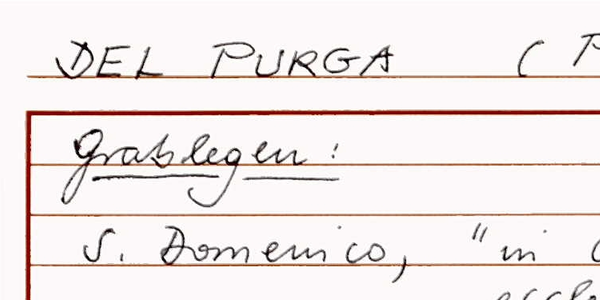 DEL PURGA (
Grablegen:
S. Domenico, "in